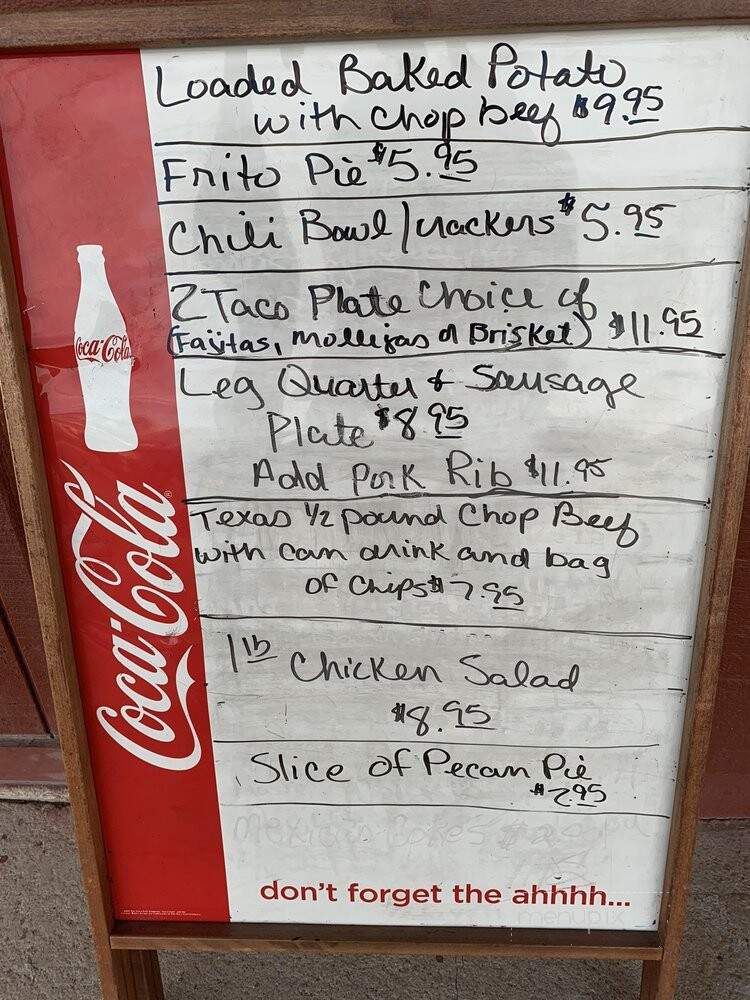 Loaded Baked Potato
with Chop Beef $9.95
Frito Pie $5.95
Chili Bowl/crackers $5.95
2 Taco Plate Choice of
(Fajitas, Mollejas or Brisket) $11.95
Leg Quarter & Sausage
Plate $8.95
Add Pork Rib $11.95
Texas 1/2 pound Chop Beef
with can drink and bag
of Chips $7.95
1 lb Chicken Salad
$8.95
Slice of Pecan Pie
$2.95
Mexican
don't forget the ahhhh...
menupix
Coca-Cola
Coca-Cola®